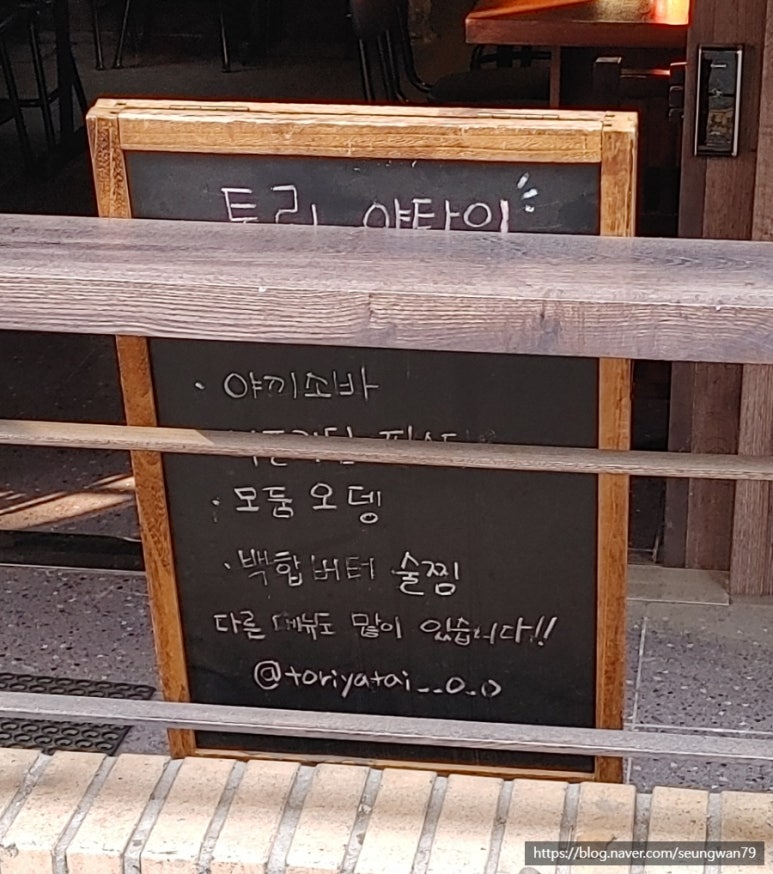 토리 야타이
· 야끼소바
· 모둠 오뎅
· 백합버터 술찜
다른 메뉴도 많이 있습니다!!
@toriyatai__o_o
https://blog.naver.com/seungwan79